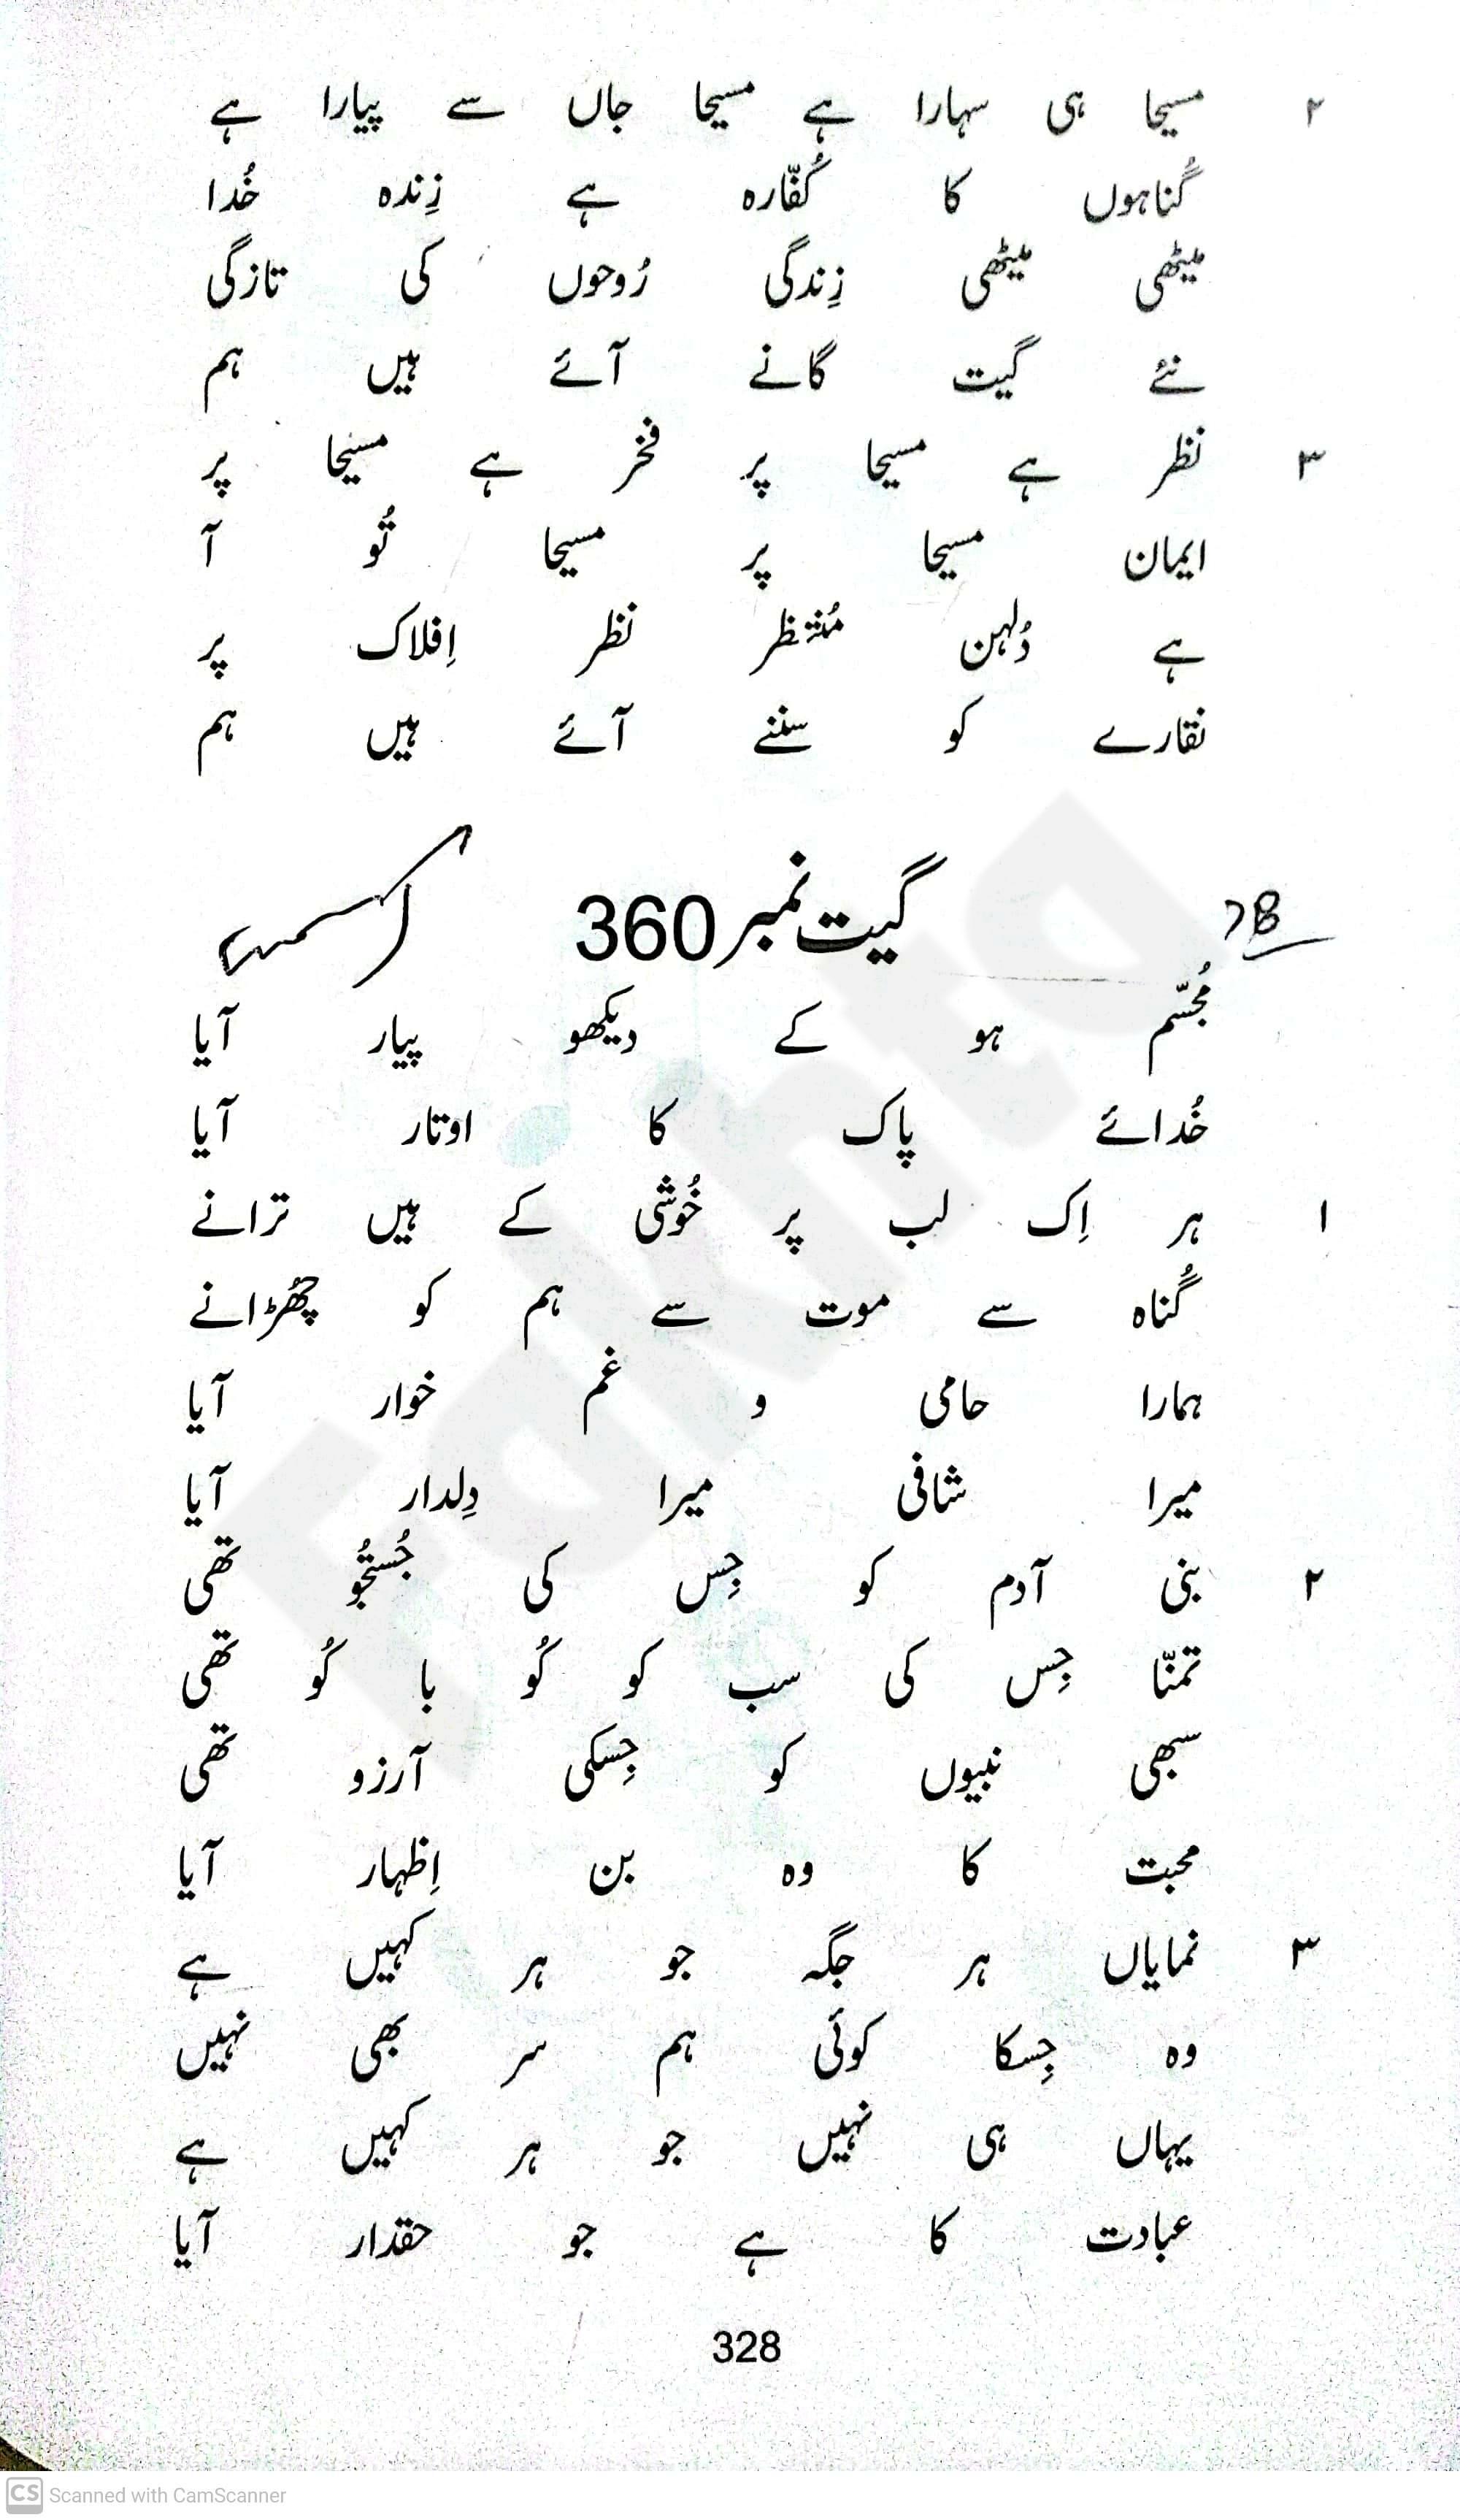 ۲ مسیحا ہی سہارا ہے مسیحا جاں سے پیارا ہے
گُناہوں کا کُفّارہ ہے زِندہ خُدا
میٹھی میٹھی زِندگی رُوحوں کی تازگی
نئے گیت گانے آئے ہیں ہم
۳ نظر ہے مسیحا پر فخر ہے مسیحا پر
ایمان مسیحا پر مسیحا تُو آ
ہے دُلہن مُنتظر نظر اِفلاک پر
نقارے کو سننے آئے ہیں ہم
78 گیت نمبر 360
مُجسّم ہو کے دیکھو پیار آیا
خُدائے پاک کا اوتار آیا
۱ ہر اِک لب پر خُوشی کے ہیں ترانے
گُناہ سے موت سے ہم کو چھُڑانے
ہمارا حامی و غم خوار آیا
میرا شافی میرا دِلدار آیا
۲ بنی آدم کو جِس کی جُستجُو تھی
تمنّا جِس کی سب کو کُو با کُو تھی
سبھی نبیوں کو جِسکی آرزو تھی
محبت کا وہ بن اِظہار آیا
۳ نمایاں ہر جگہ جو ہر کہیں ہے
وہ جِسکا کوئی ہم سر بھی نہیں
یہاں ہی نہیں جو ہر کہیں ہے
عبادت کا ہے جو حقدار آیا
328
Fakhta
CS Scanned with CamScanner